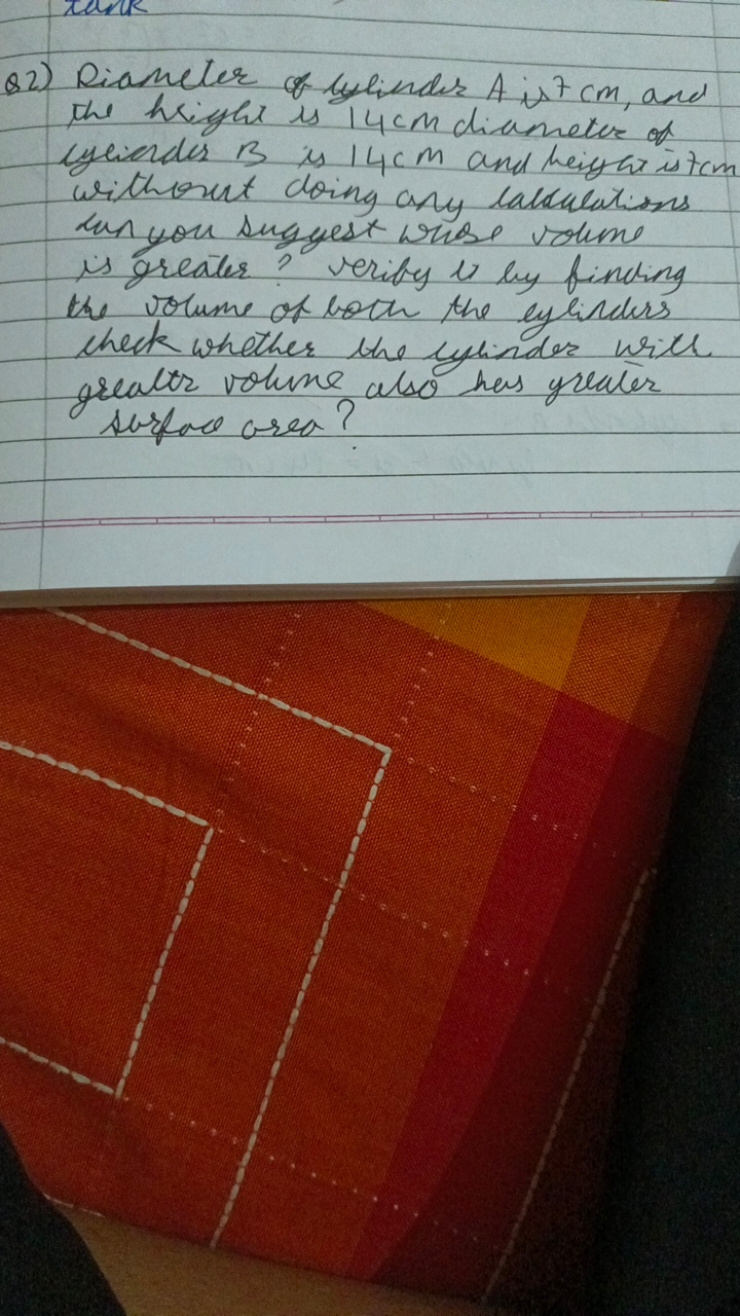 tank
Q2) Diameter of cylinder A is 7 cm, and
the height is 14cm diameter of
cylinder B is 14cm and height is 7cm
without doing any calculations
can you suggest whose volume
is greater? verify it by finding
the volume of both the cylinders
check whether the cylinder with
greater volume also has greater
surface area?